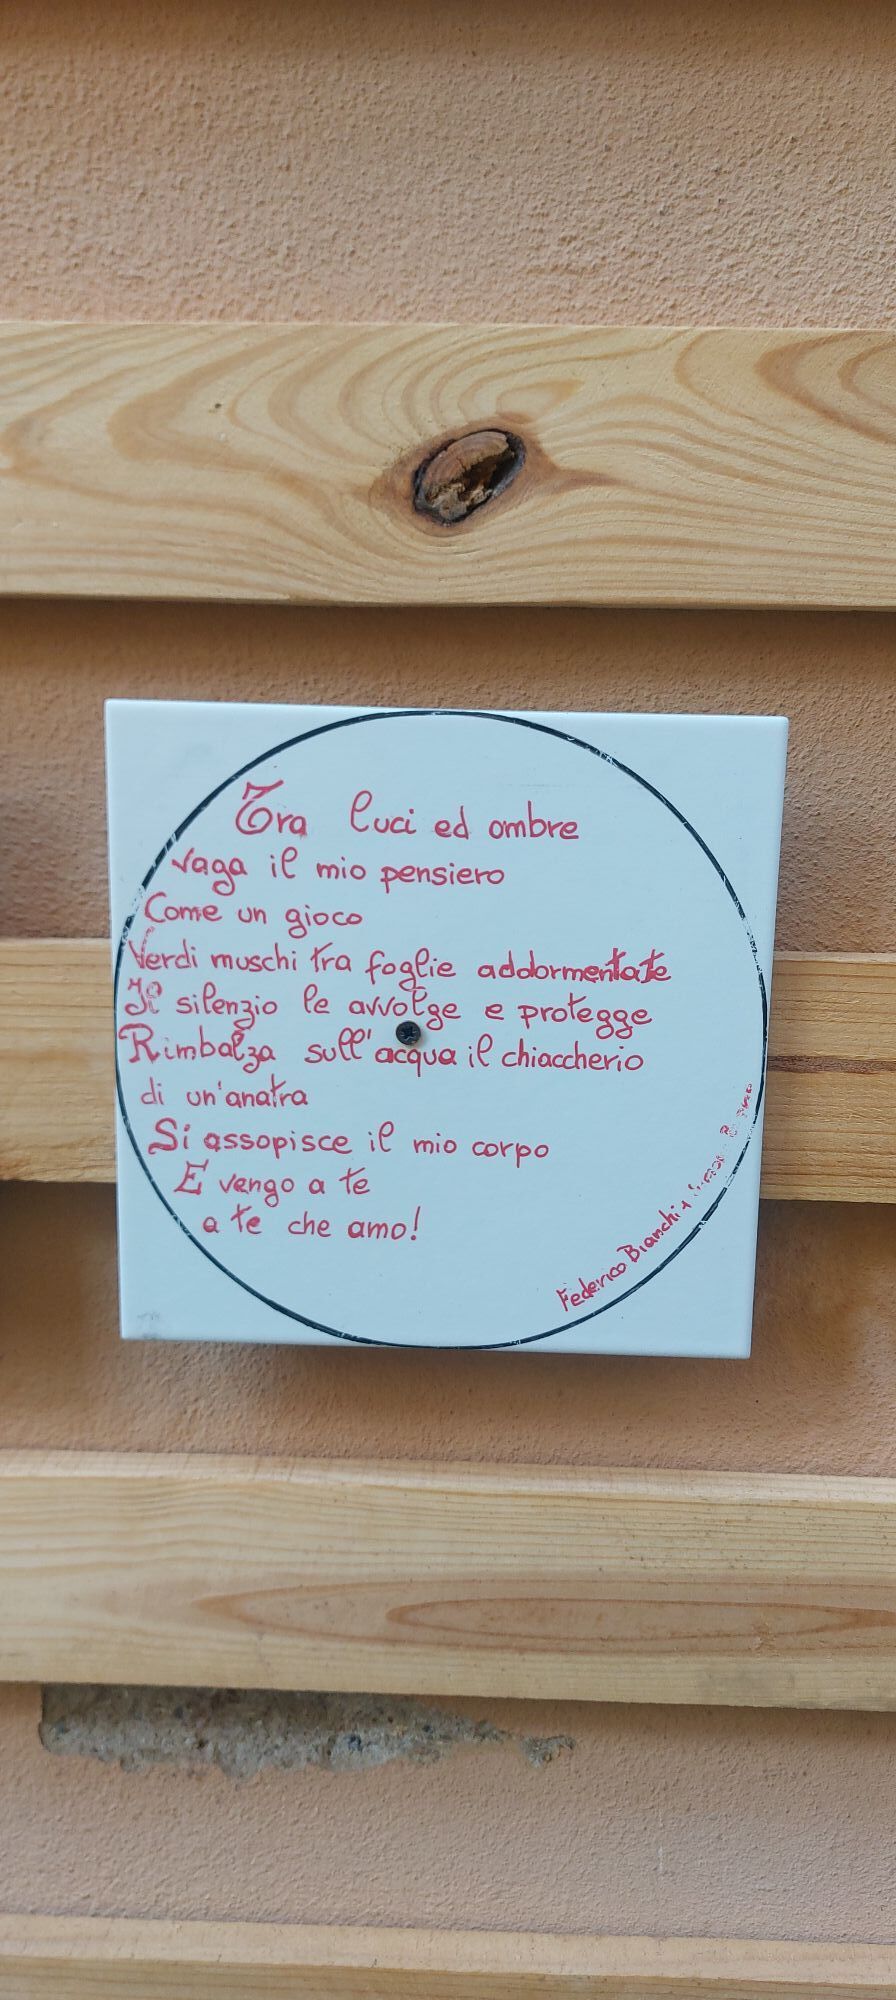 Tra luci ed ombre
vaga il mio pensiero
Come un gioco
Verdi muschi tra foglie addormentate
Il silenzio le avvolge e protegge
Rimbalza sull'acqua il chiaccherio
di un'anatra
Si assopisce il mio corpo
E vengo a te
a te che amo!
Federico Bianchi